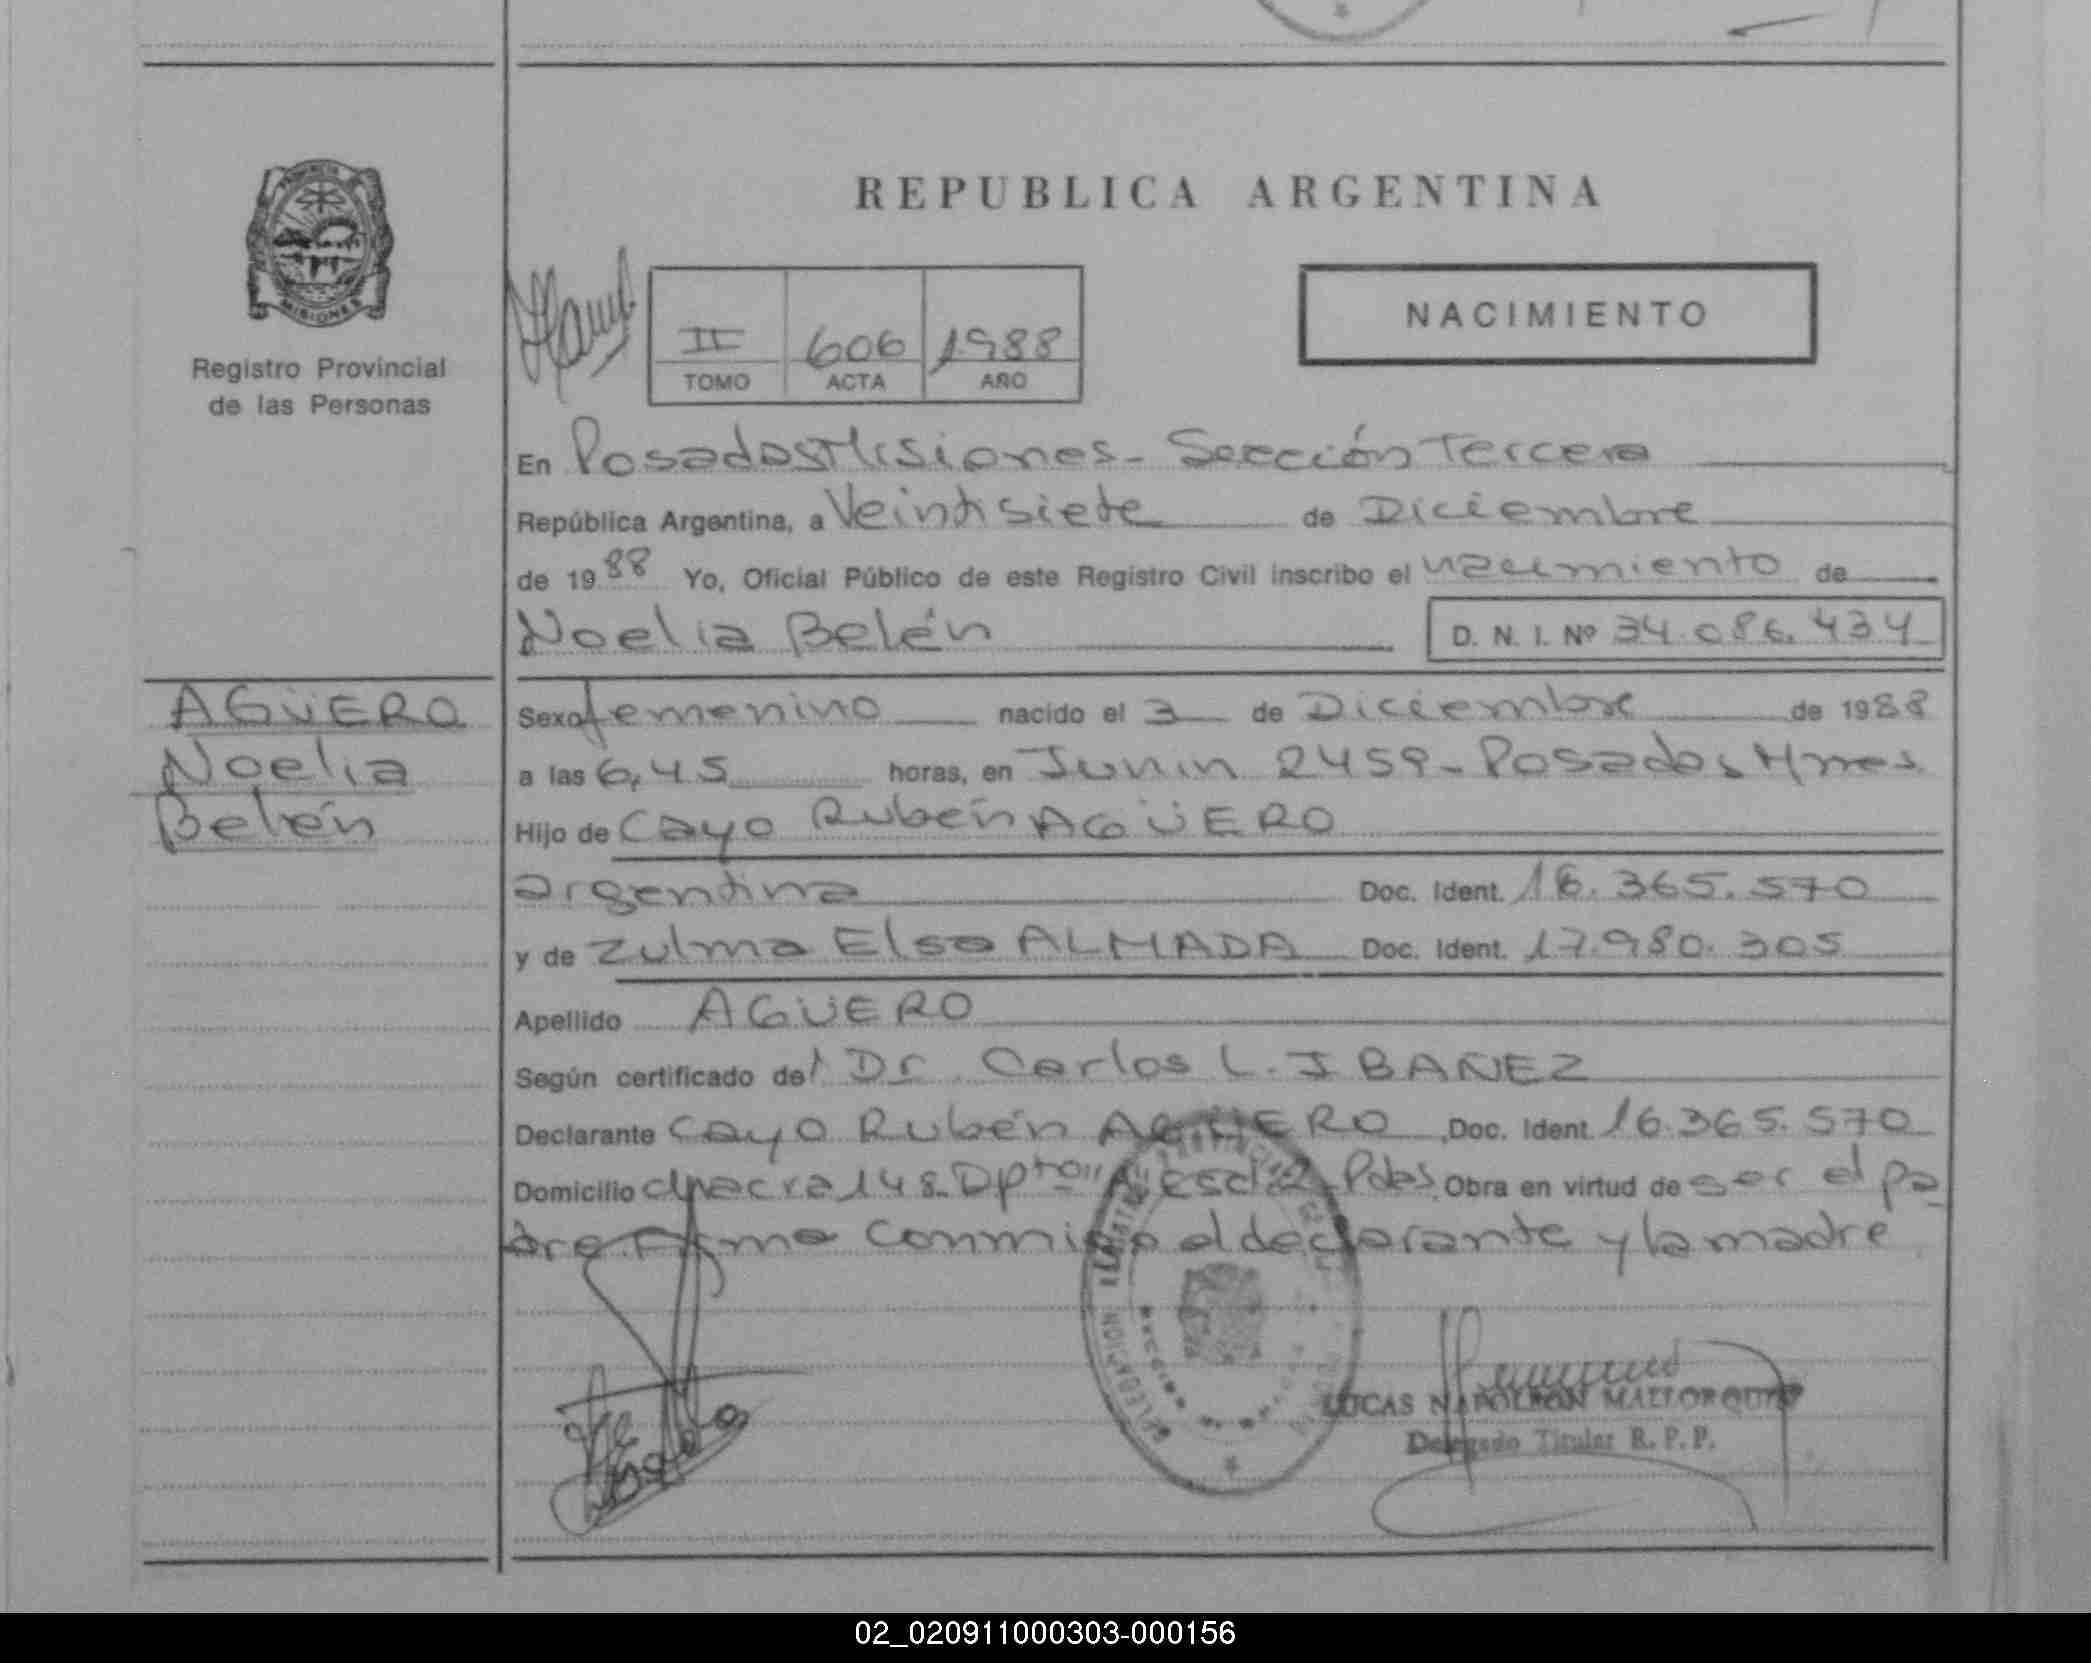 REPUBLICA ARGENTINA
MISIONES
Registro Provincial
de las Personas
NACIMIENTO
II 606 1988
TOMO ACTA AÑO
En Posadas Misiones - Sección Tercera
República Argentina, a Veintisiete de Diciembre
de 1988 Yo, Oficial Público de este Registro Civil inscribo el nacimiento de
Noelia Belén D. N. I. Nº 34.086.434
AGÜERO
Noelia
Belén
Sexo femenino nacido el 3 de Diciembre de 1988
a las 6,45 horas, en Junin 2459 - Posadas Mnes
Hijo de Cayo Rubén AGÜERO
argentina Doc. Ident. 16.365.570
y de Zulma Elsa ALMADA Doc. Ident. 17.980.305
Apellido AGÜERO
Según certificado del Dr. Carlos L. IBAÑEZ
Declarante Cayo Rubén AGÜERO Doc. Ident. 16.365.570
Domicilio chacra 148. Dpto "A" esc. 2 Pdas. Obra en virtud de ser el pa
dre. Firma conmigo el declarante y la madre
LUCAS NAPOLEON MALLORQUIN
Delegado Titular R. P. P.
02_020911000303-000156